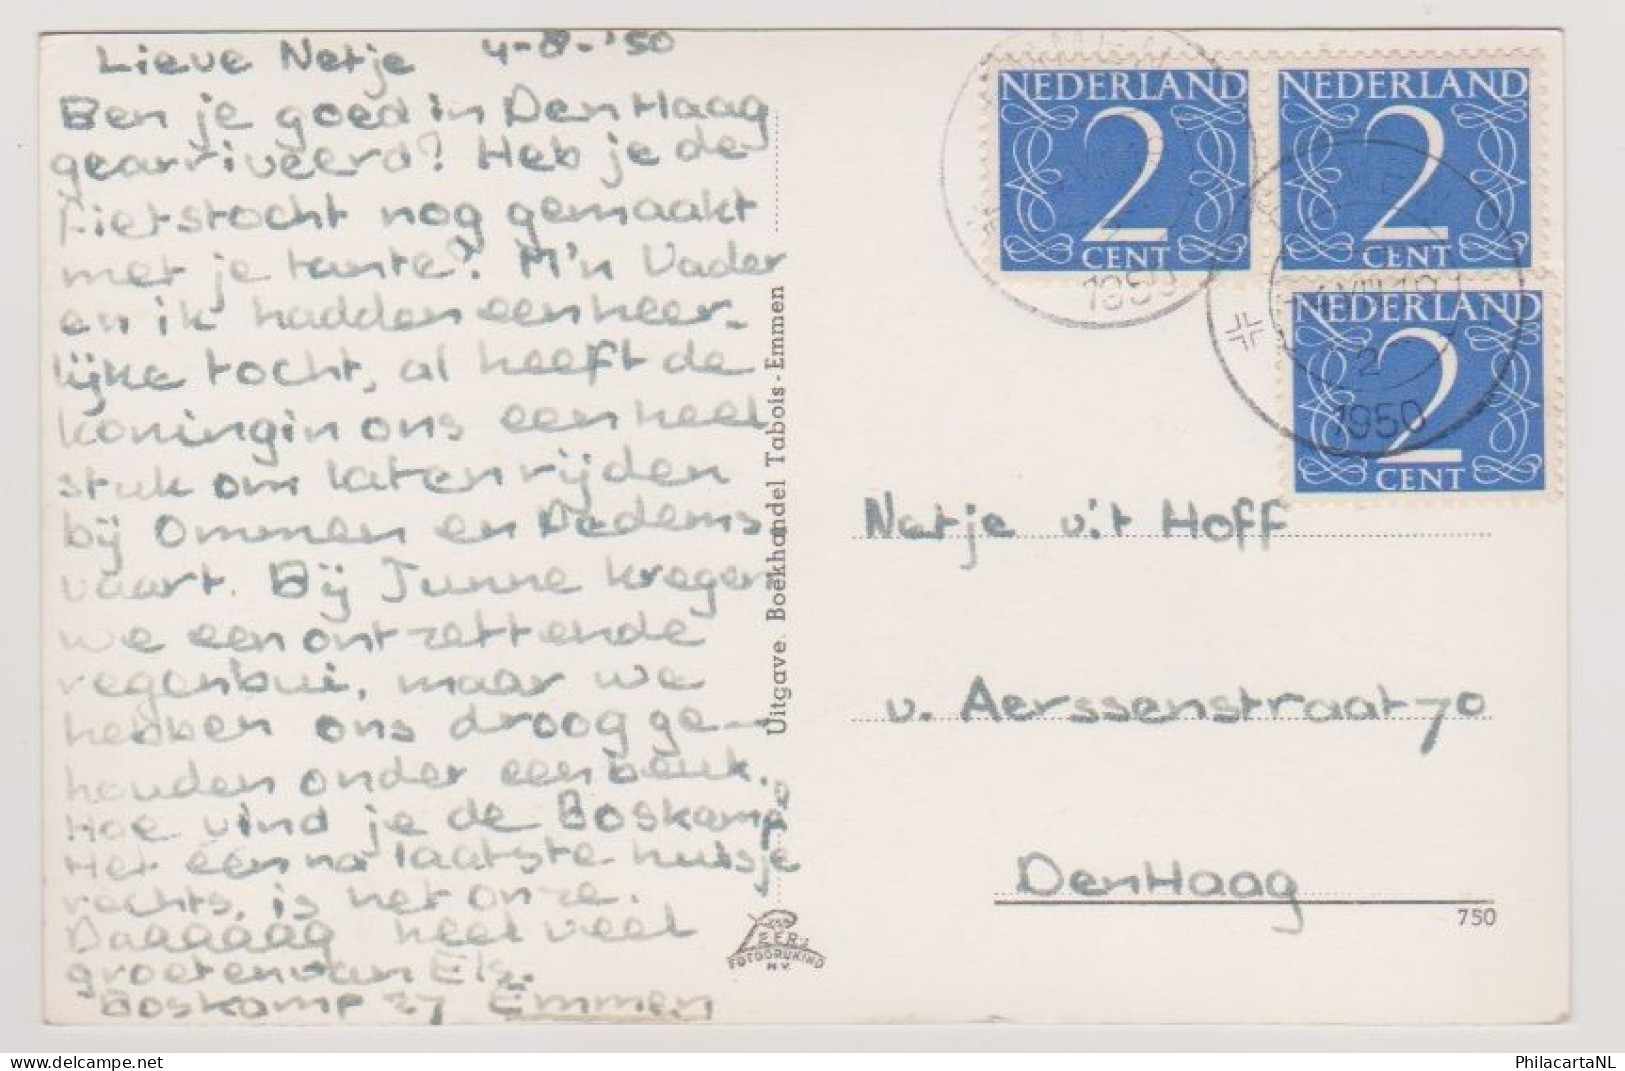 Lieve Netje 4-8-'50
Ben je goed in Den Haag
gearriveerd? Heb je de
fietstocht nog gemaakt
met je tante? M'n Vader
en ik hadden een heer-
lijke tocht, al heeft de
koningin ons een heel
stuk om laten rijden
bij Ommen en Dedems
vaart. Bij Junne kregen
we een ontzettende
regenbui, maar we
hebben ons droog ge-
houden onder een beuk.
Hoe vind je de Boskamp?
Het één na laatste huisje
rechts, is het onze.
Daaaaaag heel veel
groeten van Els.
Boskamp 27 Emmen
Uitgave Boekhandel Tabois-Emmen
LEER'S
FOTODRUKIND
N.V.
NEDERLAND
2
CENT
NEDERLAND
2
CENT
NEDERLAND
2
CENT
1950
2
1950
Netje v.'t Hoff
v. Aerssenstraat 70
Den Haag
750
PhilacartaNL